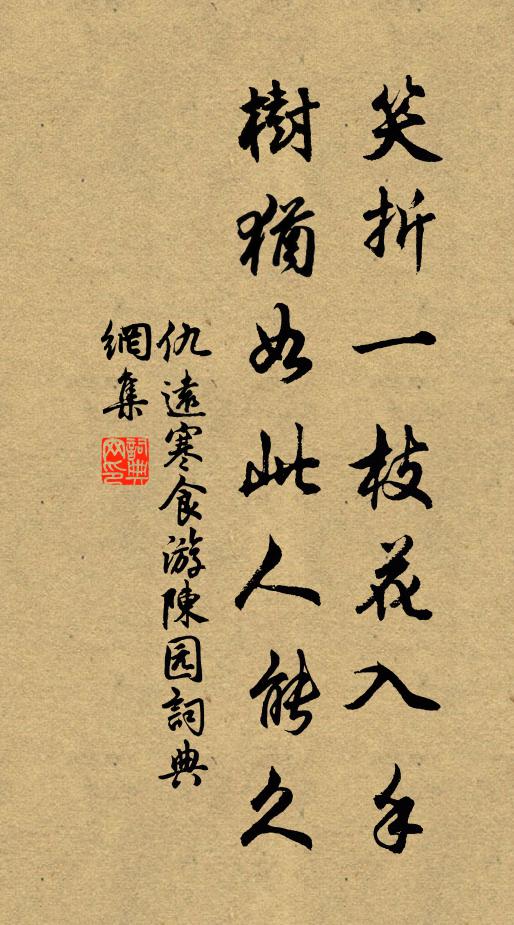 笑折一枝花入手
樹猶如此人能久
仇遠寒食游陳园詞典
網集
詞典网印